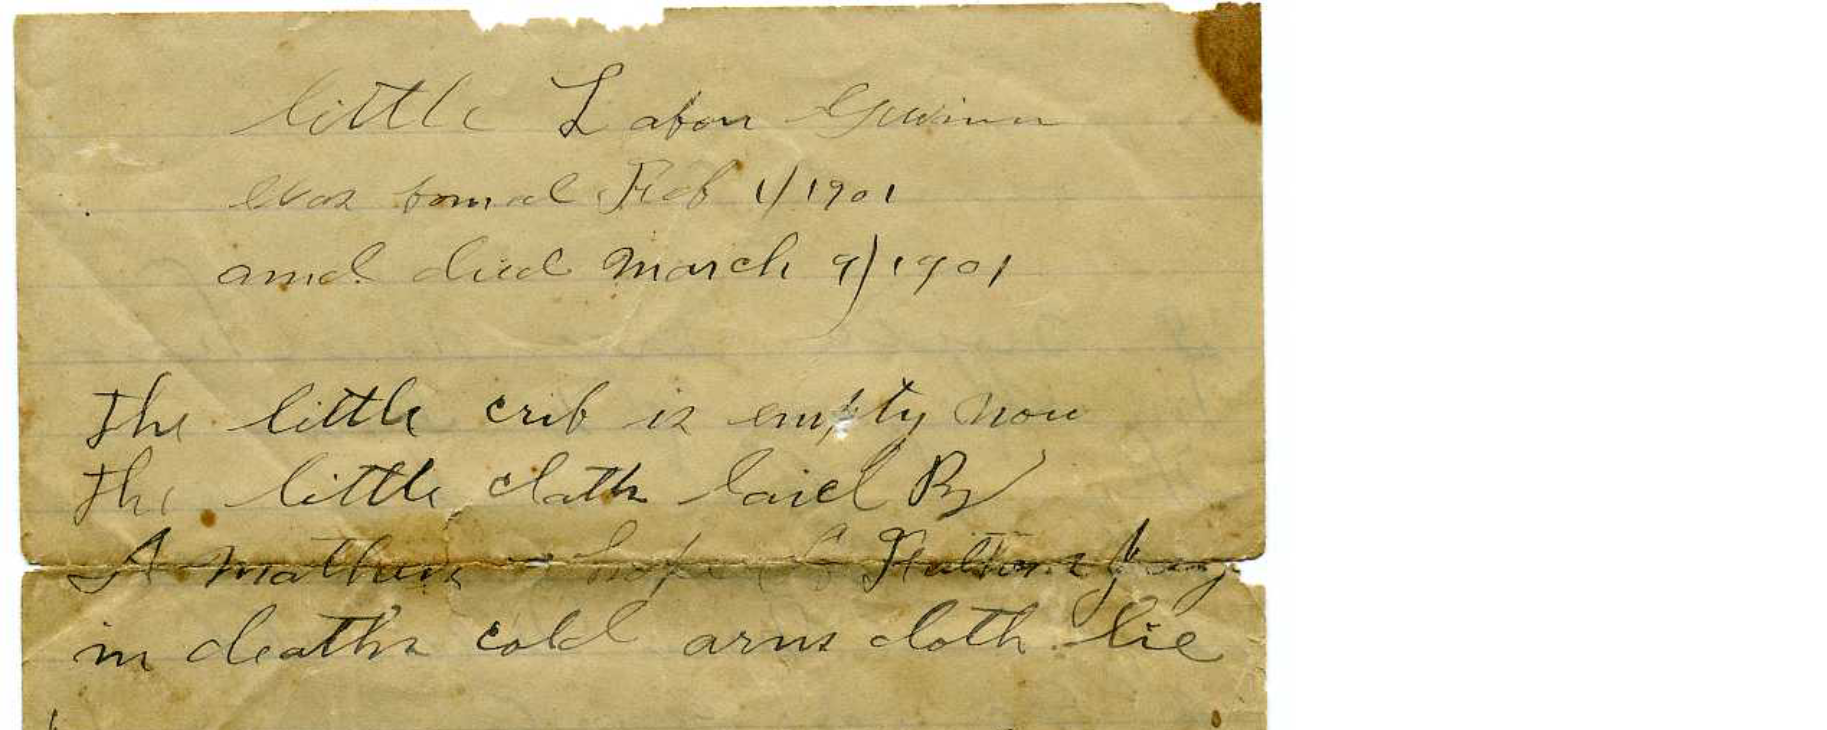 little Labon Gwinn
was bornd Feb 1/1901
and died March 9/1901
The little crib is empty now
The little cloth laid By
A mothers hope
in deaths cold arms doth lie